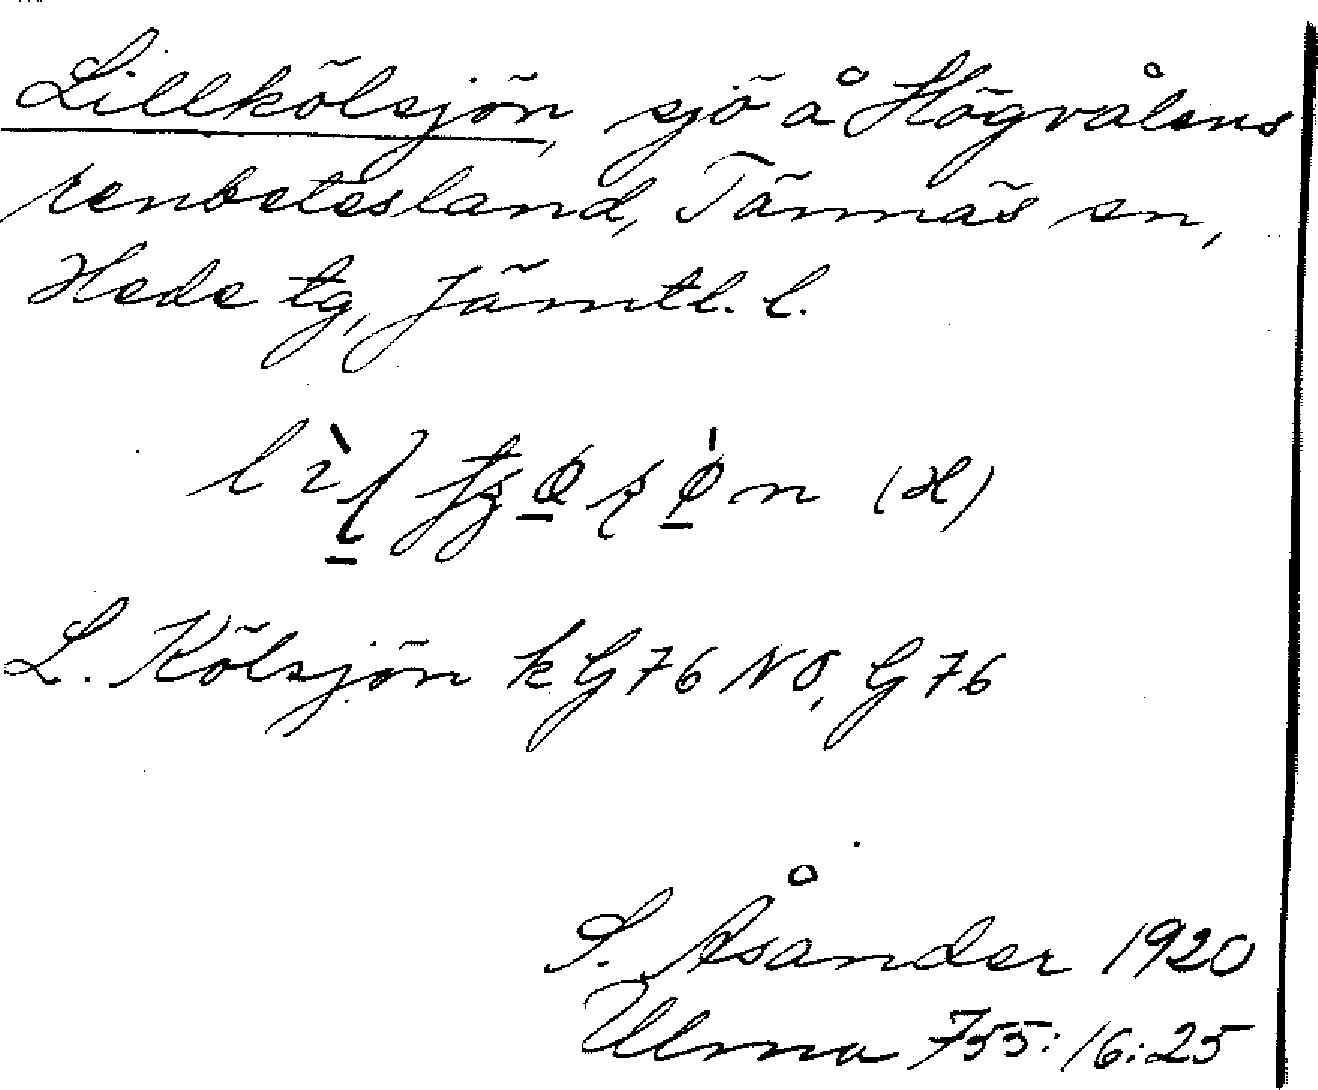 Lillkölsjön, sjö å Högvålens
renbetesland, Tännäs sn,
Hede tg, Jämtl. l.
(H)
L. Kölsjön k G 76 NO, G 76
S. Åsander 1920
Ulma 755:16:25